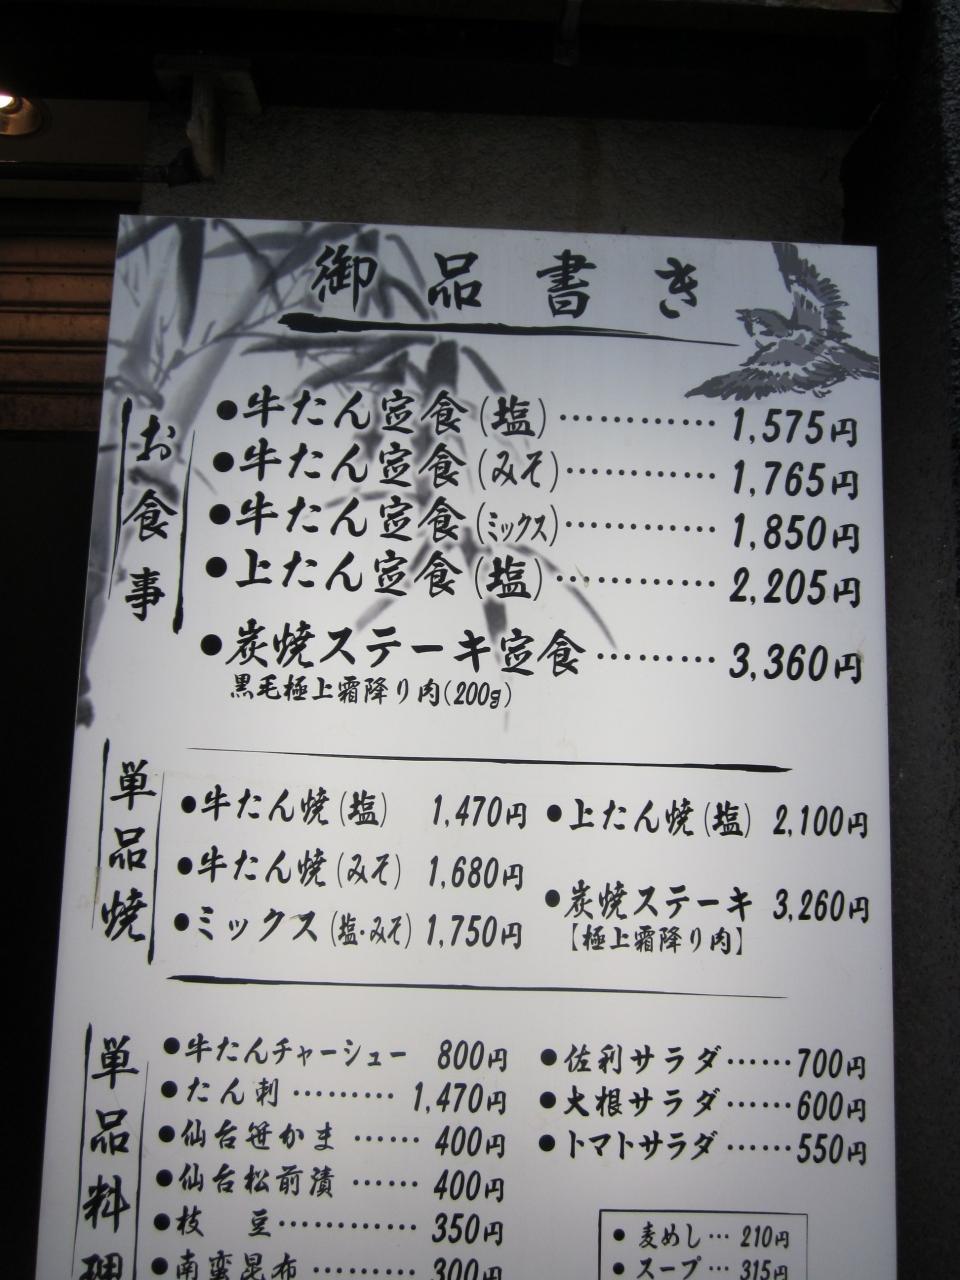 御品書き
お食事
●牛たん定食(塩)…………1,575円
●牛たん定食(みそ)…………1,765円
●牛たん定食(ミックス)…………1,850円
●上たん定食(塩)…………2,205円
●炭焼ステーキ定食………3,360円
黒毛極上霜降り肉(200g)
単品焼
●牛たん焼(塩) 1,470円
●牛たん焼(みそ) 1,680円
●ミックス(塩・みそ) 1,750円
●上たん焼(塩) 2,100円
●炭焼ステーキ 3,260円
【極上霜降り肉】
単品料理
●牛たんチャーシュー 800円
●たん刺………1,470円
●仙台笹かま……400円
●仙台松前漬……400円
●枝豆…………350円
●南蛮昆布………300円
●佐利サラダ……700円
●大根サラダ……600円
●トマトサラダ……550円
●麦めし…210円
●スープ…315円